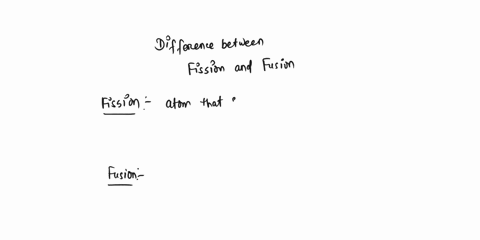 Difference between
Fission and Fusion
Fission:- atom that
Fusion:-